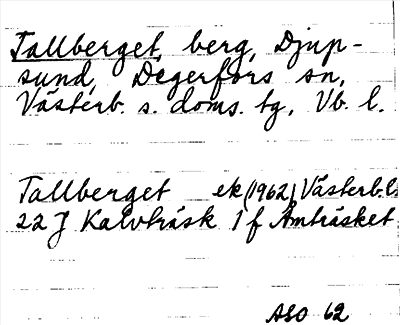 Tallberget, berg, Djup-
sund, Degerfors sn,
Västerb. s. doms. tg, Vb. l.
Tallberget ek (1962) Västerb.l.
22 J Kalvträsk 1 f Åmträsket
ASO 62